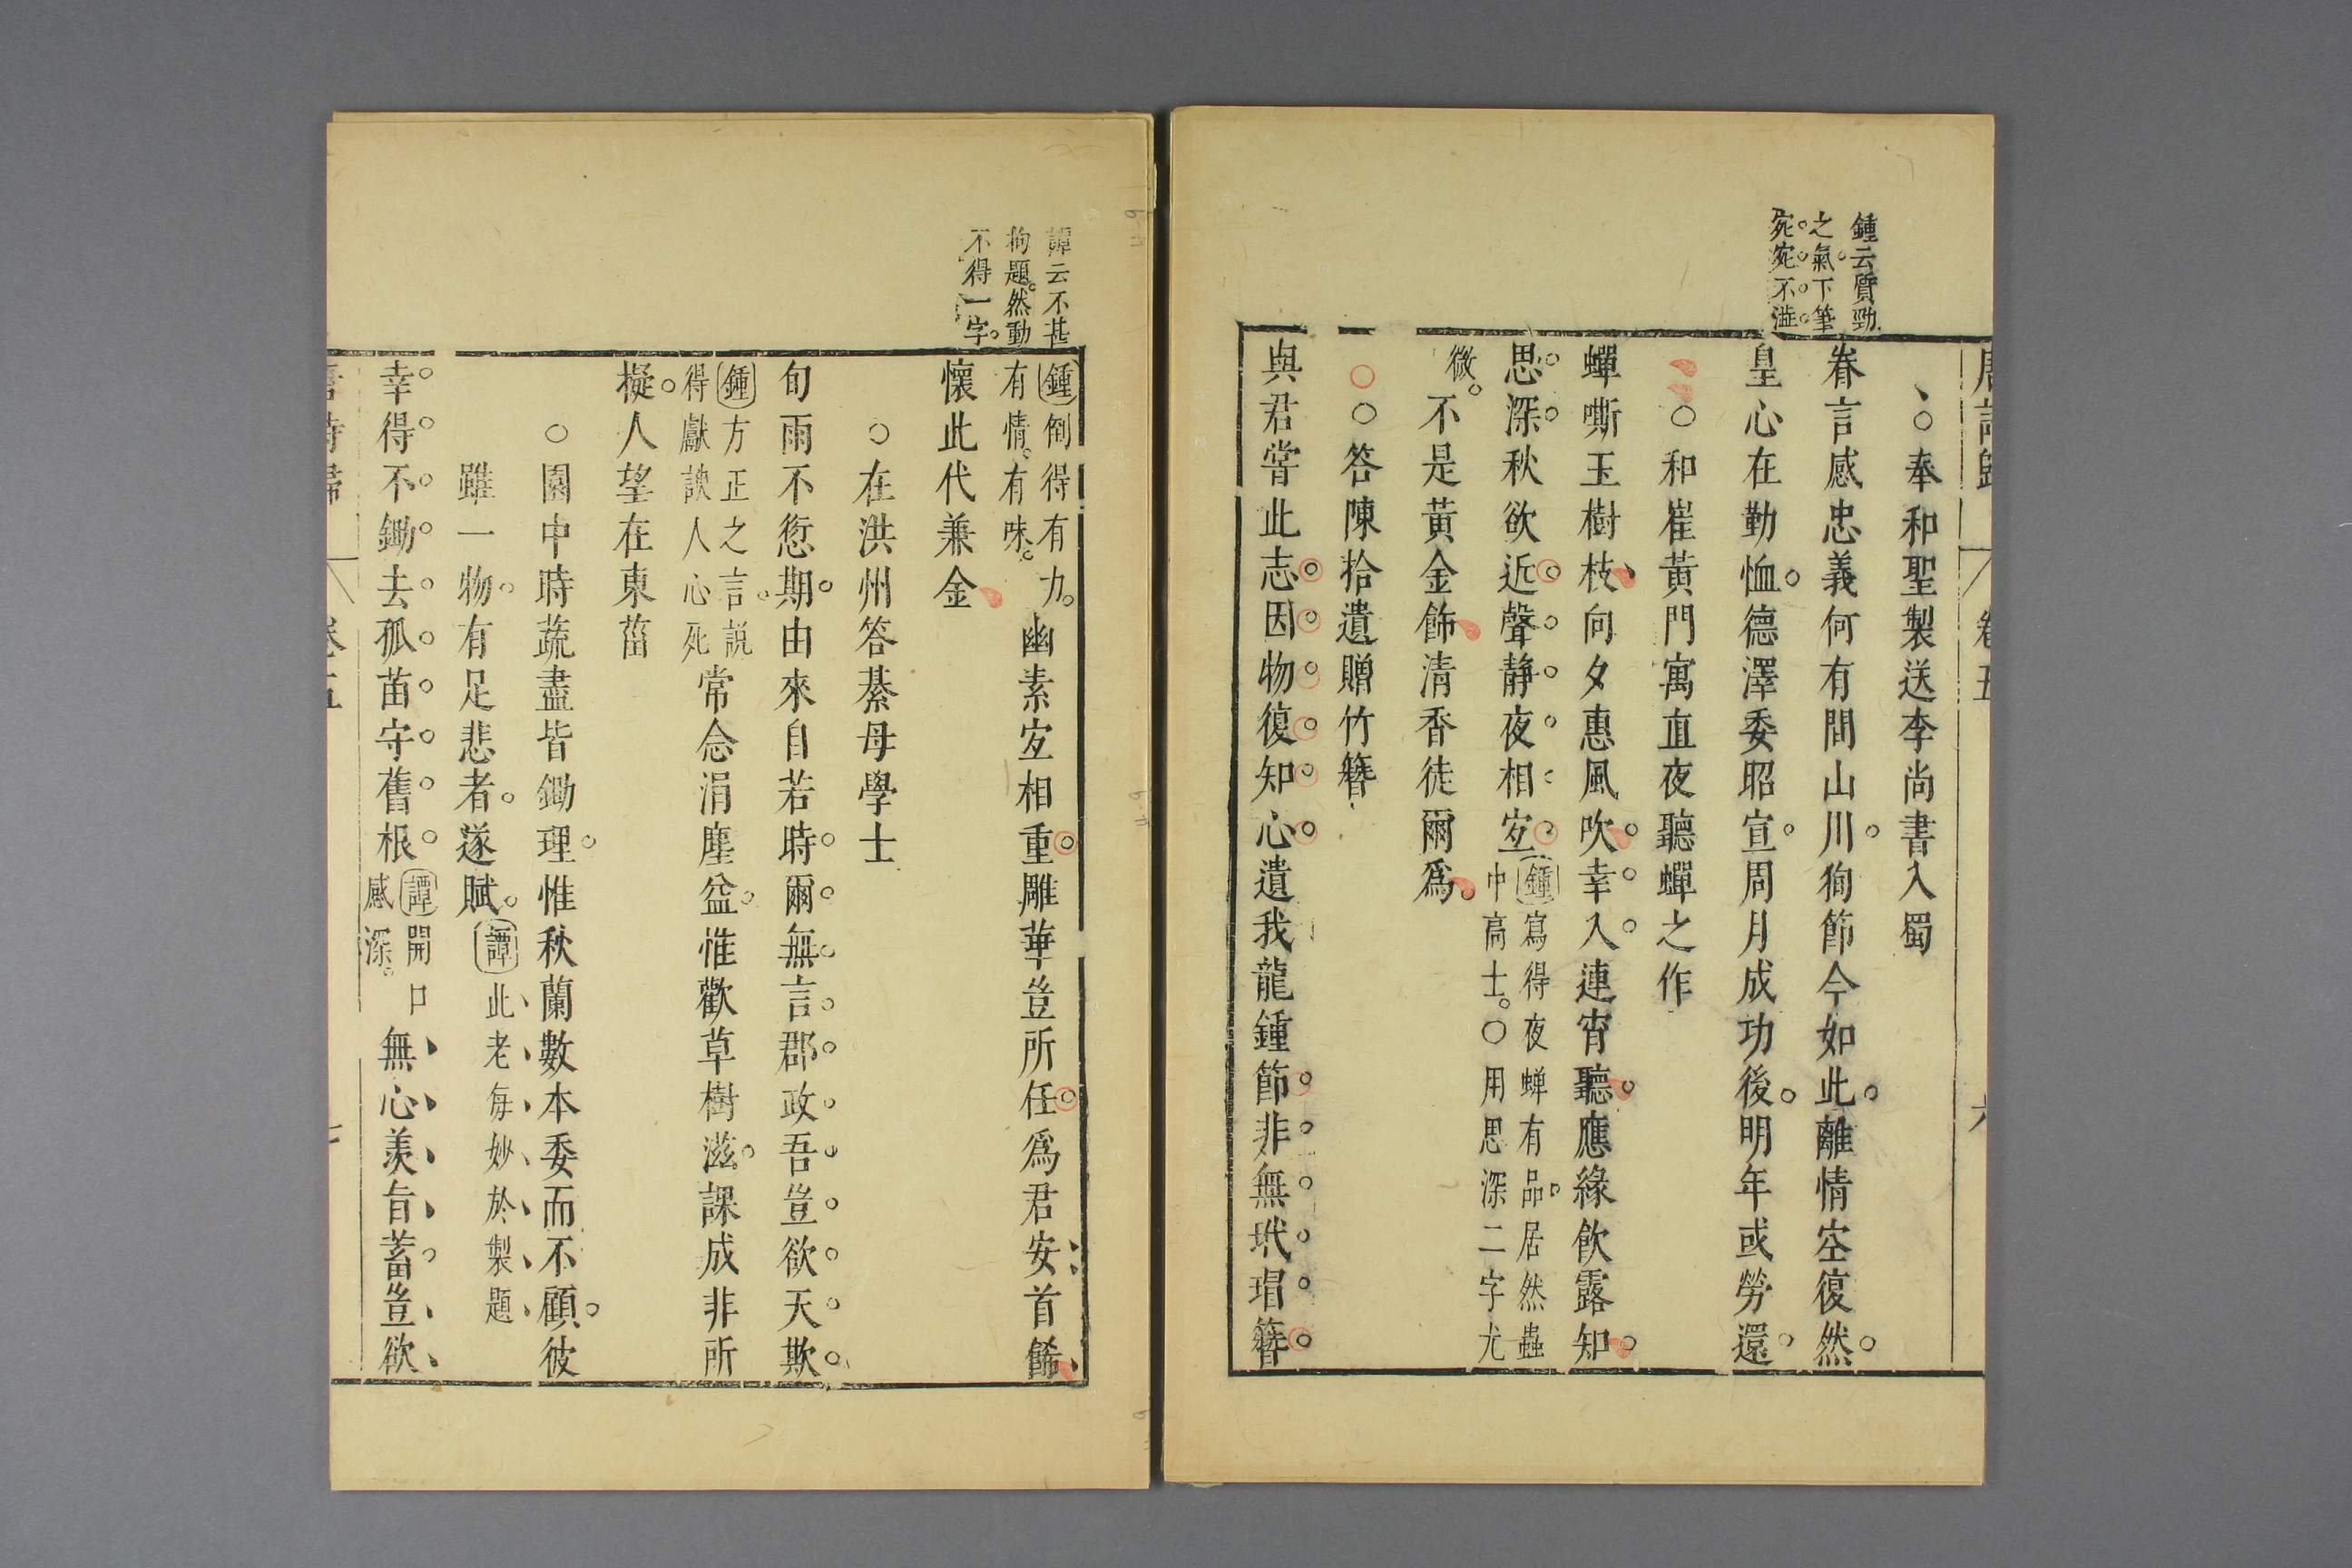 唐詩歸
卷五
六
鍾云質勁
之氣下筆
宛宛不澁
奉和聖製送李尚書入蜀
眷言感忠義何有間山川徇節今如此離情空復然
皇心在勤恤德澤委昭宣周月成功後明年或勞還
○和崔黃門寓直夜聽蟬之作
蟬嘶玉樹枝向夕惠風吹幸入連宵聽應緣飲露知
思深秋欲近聲静夜相宐
鍾寫得夜蟬有品居然蟲
中高士○用思深二字尤
微
不是黃金飾清香徒爾爲
○答陳拾遺贈竹簪
與君嘗此志因物復知心遺我龍鍾節非無玳瑁簪
譚云不甚
拘題然動
不得一字
鍾倒得有力
有情有味
幽素宐相重雕華豈所任爲君安首餙
懷此代兼金
○在洪州答綦母學士
旬雨不愆期由來自若時爾無言郡政吾豈欲天欺
鍾方正之言說
得獻諛人心死
常念涓塵益惟歡草樹滋課成非所
擬人望在東菑
○園中時蔬盡皆鋤理惟秋蘭數本委而不顧彼
雖一物有足悲者遂賦
譚此老每妙於製題
幸得不鋤去孤苗守舊根
譚開口
感深
無心羨旨蓄豈欲
唐詩歸
卷五
七